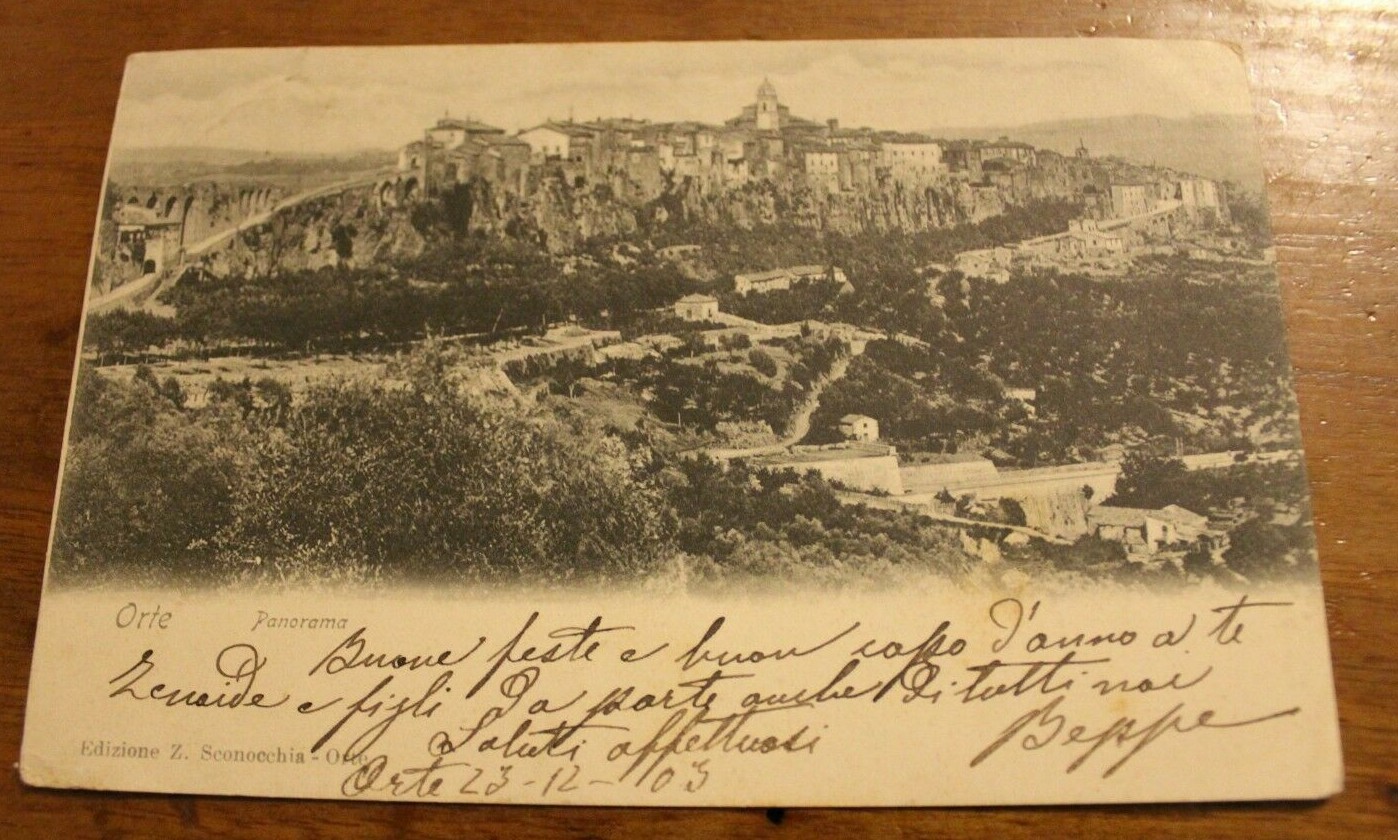 Orte Panorama
Buone feste e buon capo d'anno a te
Zenaide e figli Da parte anche di tutti noi
Saluti affettuosi Beppe
Edizione Z. Sconocchia - Orte
Orte 23-12-03